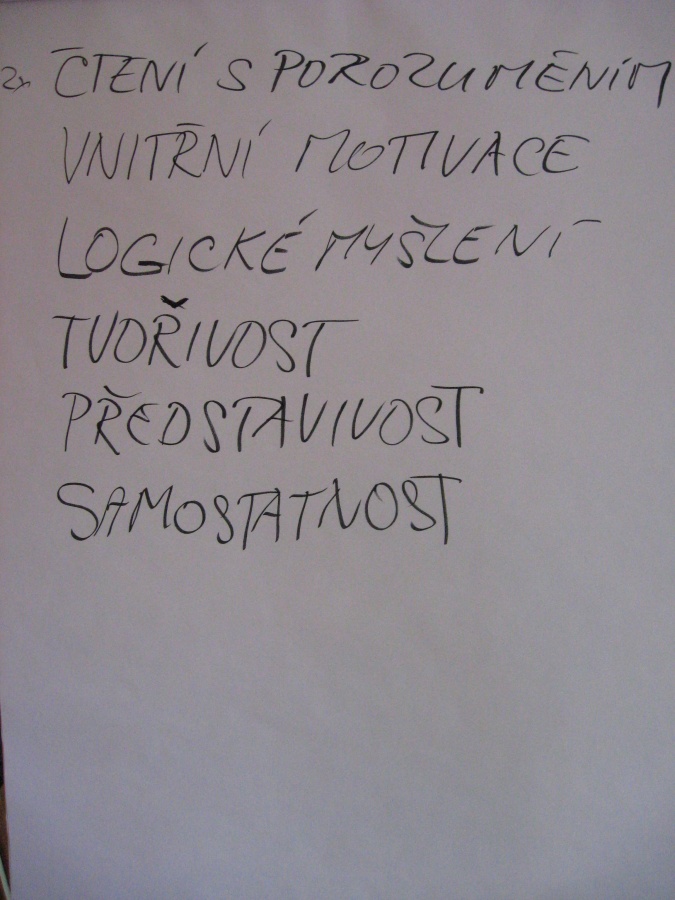 2x ČTENÍ S POROZUMĚNÍM
VNITŘNÍ MOTIVACE
LOGICKÉ MYŠLENÍ
TVOŘIVOST
PŘEDSTAVIVOST
SAMOSTATNOST